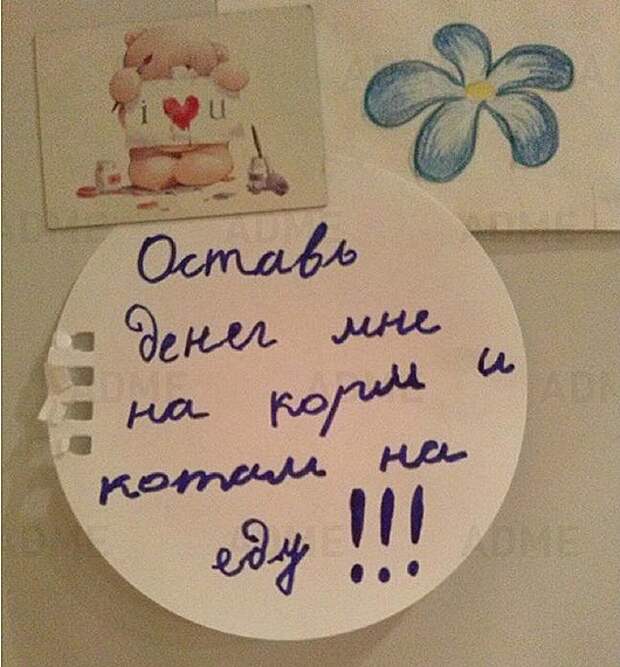 i ❤ u
Оставь
денег мне
на корм и
котам на
еду !!!
ADME
ADME
ADME
ADME
ADME
ADME
ADME